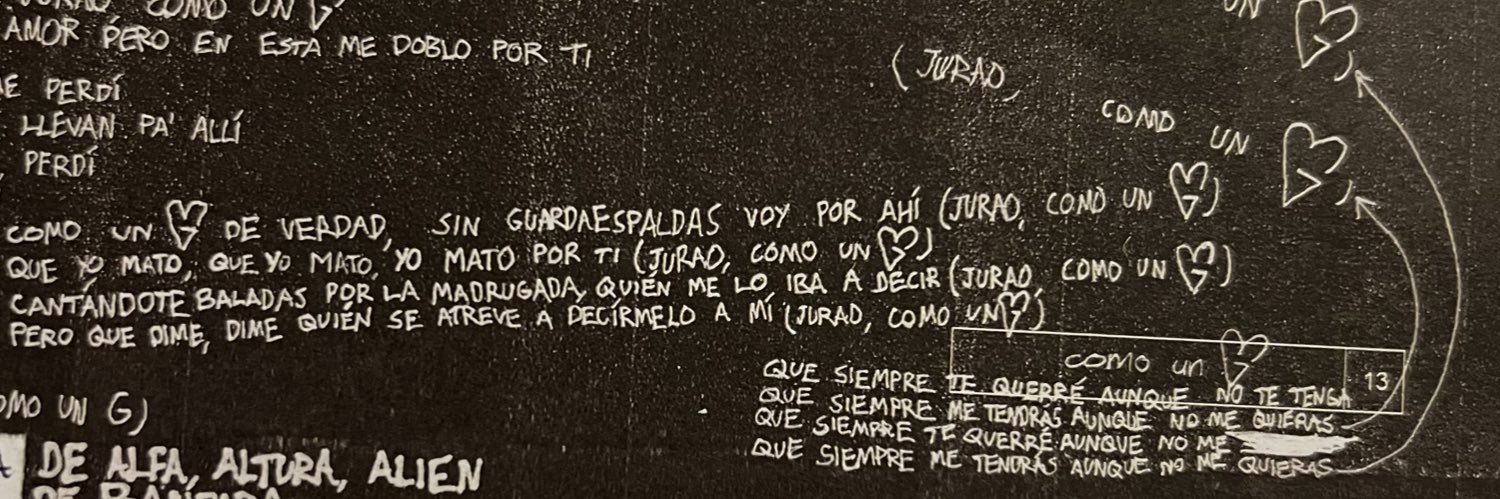 COMO UN G
AMOR PERO EN ESTA ME DOBLO POR TI
PERDÍ
LLEVAN PA' ALLÍ
PERDÍ
UN G)
(JURAO,
COMO UN G)
COMO UN G DE VERDAD, SIN GUARDAESPALDAS VOY POR AHÍ (JURAO, COMO UN G)
QUE YO MATO, QUE YO MATO, YO MATO POR TI (JURAO, COMO UN G)
CANTÁNDOTE BALADAS POR LA MADRUGADA, QUIÉN ME LO IBA A DECIR (JURAO, COMO UN G)
PERO QUE DIME, DIME QUIÉN SE ATREVE A DECÍRMELO A MÍ (JURAO, COMO UN G)
como un G 13
QUE SIEMPRE TE QUERRÉ AUNQUE NO TE TENGA
QUE SIEMPRE ME TENDRÁS AUNQUE NO ME QUIERAS
QUE SIEMPRE TE QUERRÉ AUNQUE NO ME
QUE SIEMPRE ME TENDRÁS AUNQUE NO ME QUIERAS
OMO UN G)
DE ALFA, ALTURA, ALIEN